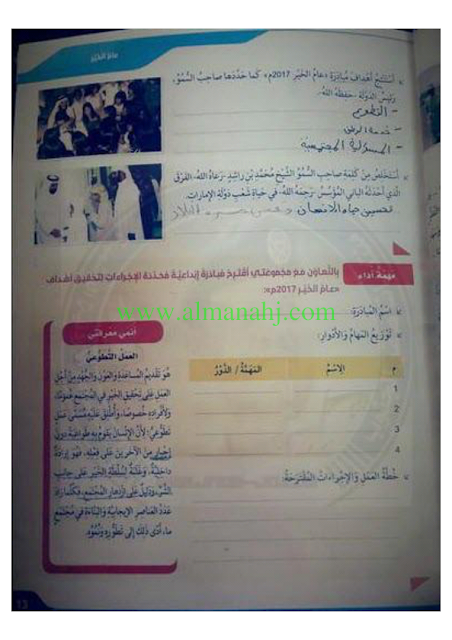 عام الخير
أستنتج أهداف مبادرة «عام الخير 2017م» كما حددها صاحب السمو،
رئيس الدولة -حفظه الله-.
- التطوع
- خدمة الوطن
- المسؤولية المجتمعية
أستخلص من كلمة صاحب السمو الشيخ محمد بن راشد -رعاه الله- الفرق
الذي أحدثه الباني المؤسس -رحمه الله- في حياة شعب دولة الإمارات.
تحسين حياة الانسان البلاد
مهمة أداء
بالتعاون مع مجموعتي أقترح مبادرة إبداعية محددة الإجراءات لتحقيق أهداف
«عام الخير 2017م»:
www.almanahj.com
اسم المبادرة:
توزيع المهام والأدوار:
م الاسم المهمة / الدور
1
2
3
4
خطة العمل والإجراءات المقترحة:
أنمي معرفتي
العمل التطوعي
هو تقديم المساعدة والعون والجهد من أجل
العمل على تحقيق الخير في المجتمع عموما،
ولأفراده خصوصا، وأطلق عليه مسمى عمل
تطوعي؛ لأن الإنسان يقوم به طواعية دون
إجبار من الآخرين على فعله، فهو إرادة
داخلية، وغلبة لسلطة الخير على جانب
الشر، ودليل على ازدهار المجتمع، فكلما زاد
عدد العناصر الإيجابية والبناءة في مجتمع
ما، أدى ذلك إلى تطوره ونموه.
13